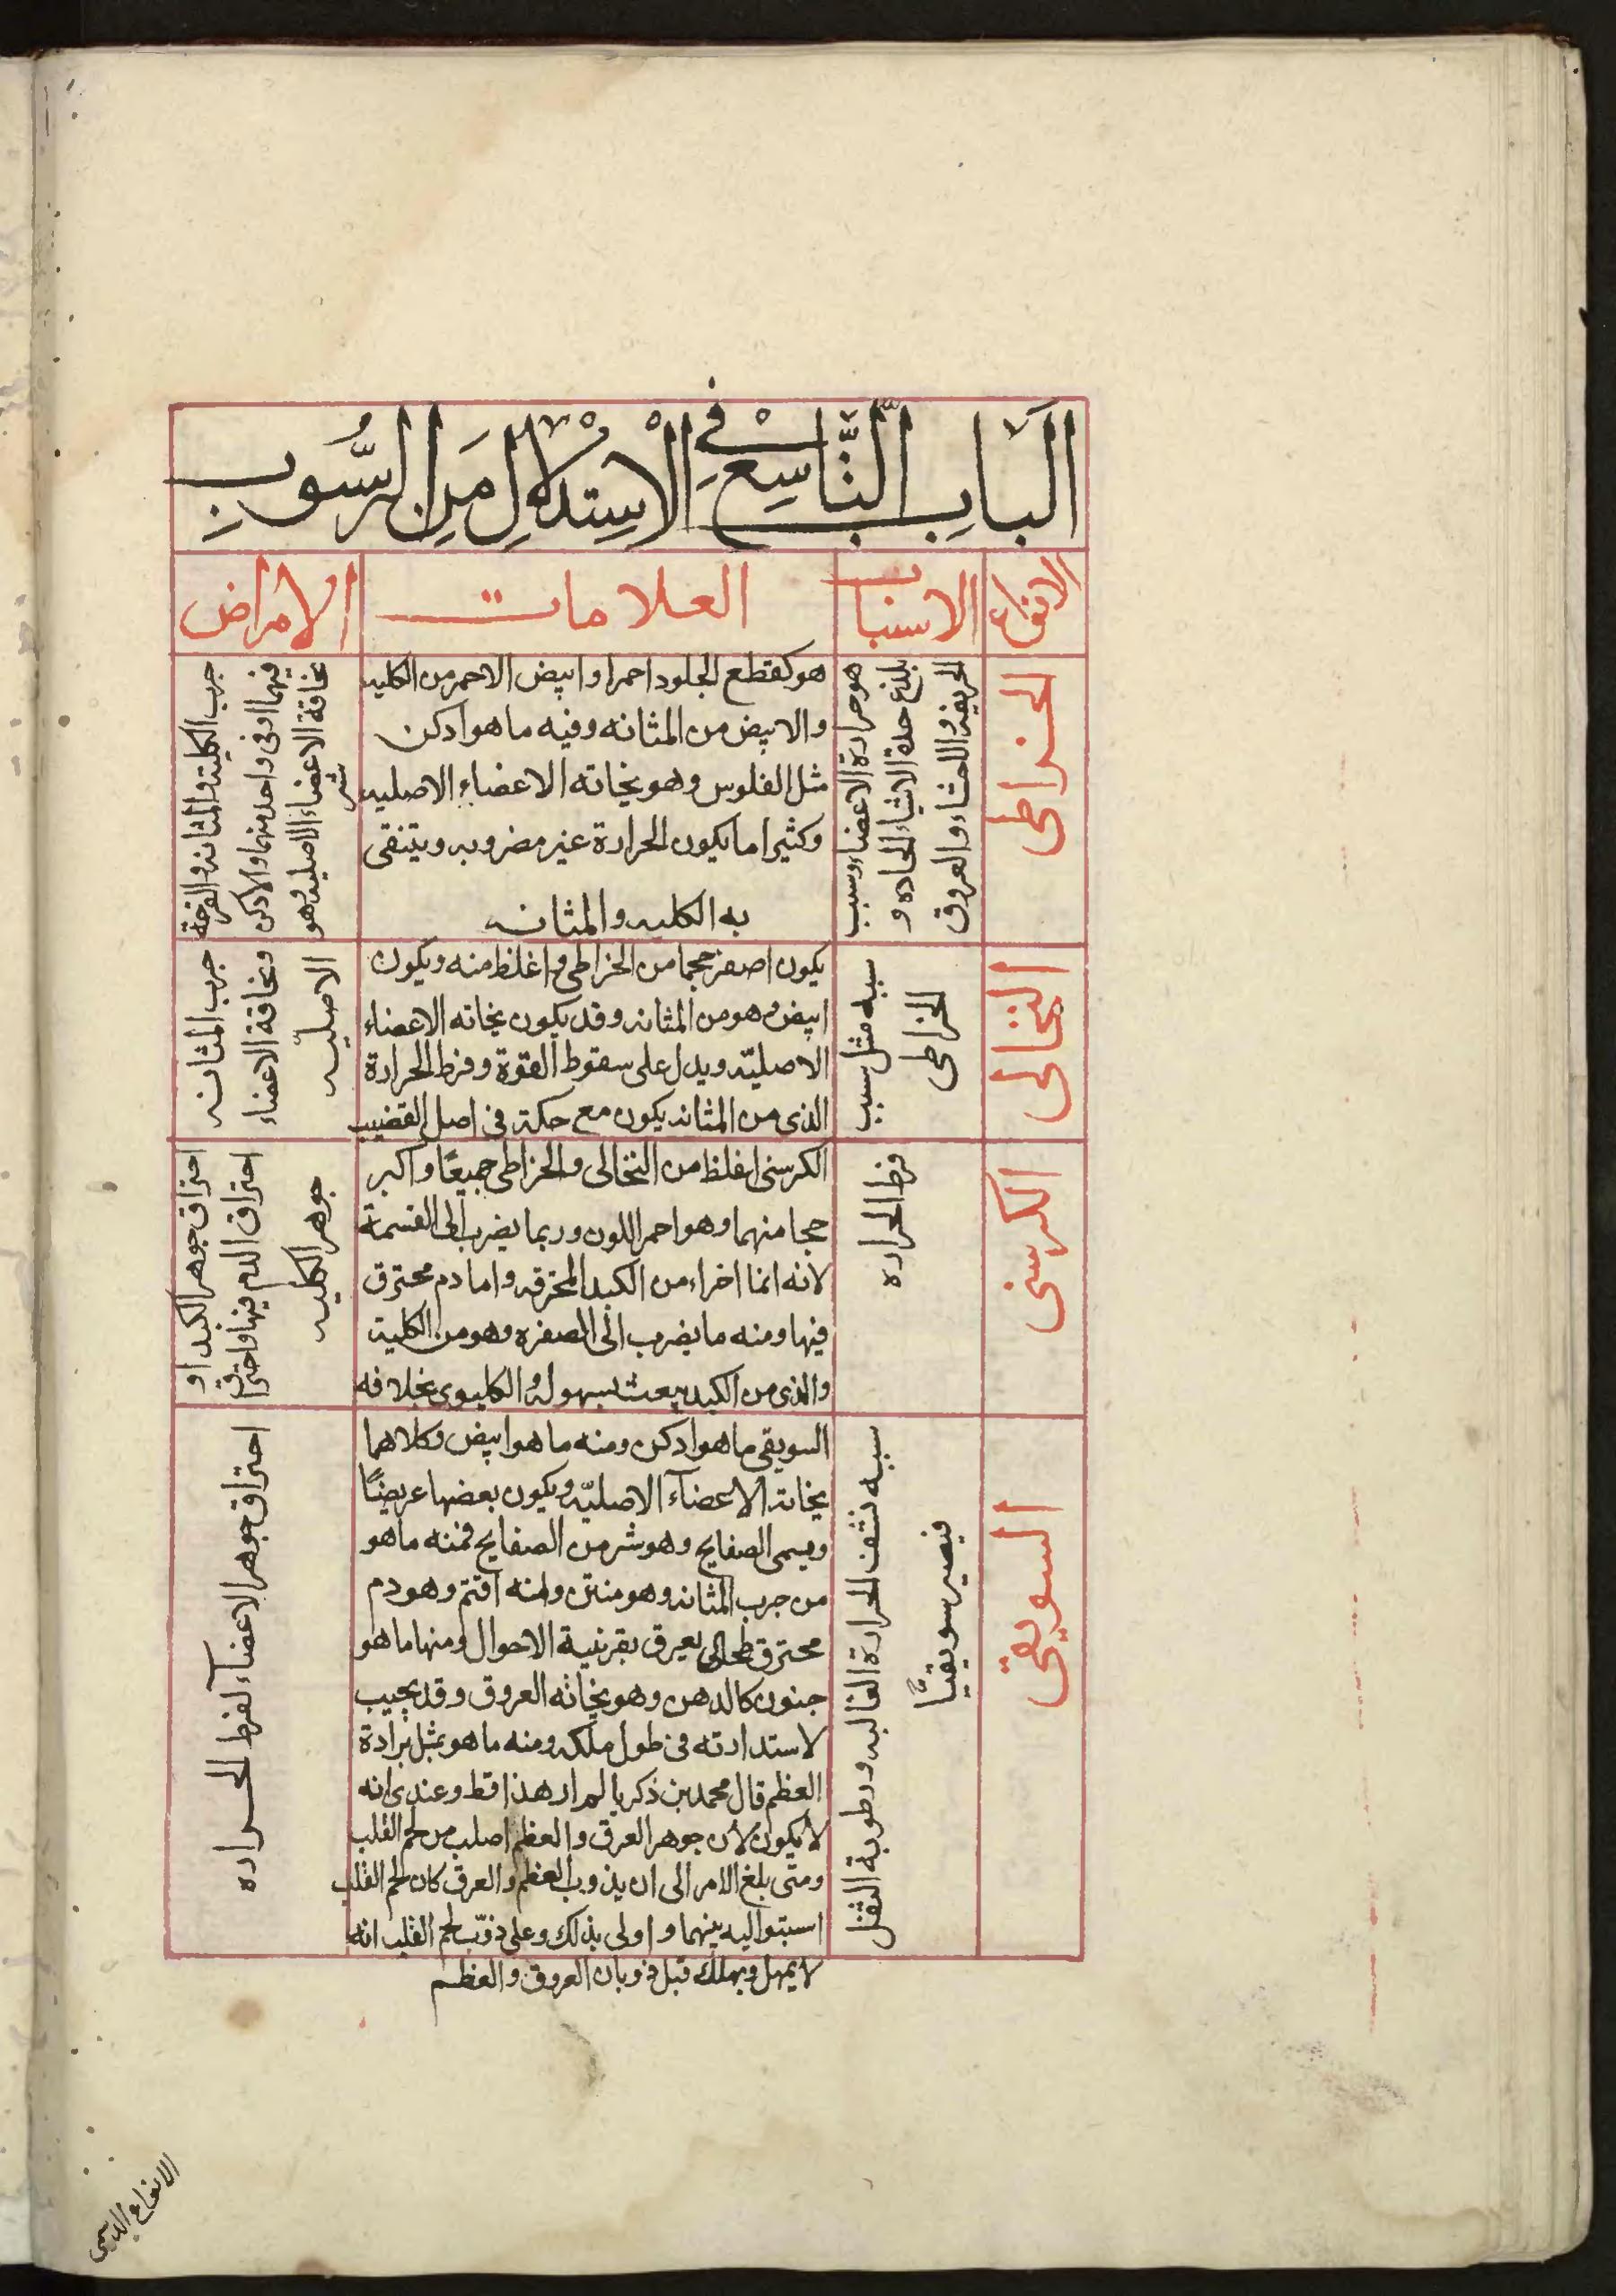 الباب التاسع في الاستدلال من الرسوب
الانواع
الاسباب
العلامات
الامراض
الخراطى
هو حرارة الاعضاء وسبب
بلغ حدة الاشياء الحاده و
الحريفه والاحشاء والعروق
هو كقطع الجلود احمر او ابيض الاحمر من الكليه
والابيض من المثانه وفيه ما هو ادكن
مثل الفلوس وهو بخاته الاعضاء الاصليه
وكثيرا ما يكون الحرارة غير مضروبه ويتنقى
به الكليه والمثانه
جرب الكلية والمثانه والقرحة
فيهما او فى واحد منهما والادكن
نخافة الاعضاء الاصليه وهو
شر
النخالى
سببه مثل سبب
الخراطى
يكون اصغر حجما من الخراطى واغلظ منه ويكون
ابيض وهو من المثانه وقد يكون بخاته الاعضاء
الاصليّه ويدل على سقوط القوة وفرط الحرارة
الذى من المثانه يكون مع حكة فى اصل القضيب
جرب المثانه
ونخافة الاعضاء
الاصليّه
الكرسنى
فرط الحراره
الكرسنى اغلظ من النخالى والخراطى جميعًا واكبر
حجما منهما وهو احمر اللون وربما يضرب الى القسمة
لانه انما اخراء من الكبد المحترقه واما دم محترق
فيها ومنه ما يضرب الى الصفره وهو من الكلية
والذى من الكبد يبعث بسهوله والكليوى بخلافه
احتراق جوهر الكبد او
احتراق الدم فيها واحتراق
جوهر الكليه
السويقى
سببه نشف الحرارة الغالبه ورطوبة الثفل
فيصير سويقيًّا
السويقى ما هو ادكن ومنه ما هو ابيض وكلاهما
بخاته الاعضآء الاصليّه ويكون بعضها عريضًا
ويسمى الصفايح وهو شر من الصفايح فمنه ما هو
من جرب المثانه وهو منتن ومنه اقتم وهو دم
محترق طحالى يعرق بقرنية الاحوال ومنها ما هو
جنون كالدهن وهو بخاته العروق وقد يجيب
لاستدارته فى طول ملكه ومنه ما هو بمثل برادة
العظم قال محمد بن ذكريا لم ار هذا قط وعندى انه
لا يكون لان جوهر العرق والعظم اصلب من لحم القلب
ومتى بلغ الامر الى ان يذوب العظم والعرق كان لحم القلب
اسبتو اليه بينهما واولى بذلك وعلى ذوّب لحم القلب انه
لا يمهل ويهلك قبل ذوبان العروق والعظم
احتراق جوهر الاعضآء لفرط الحراره
الانواع الدسمى